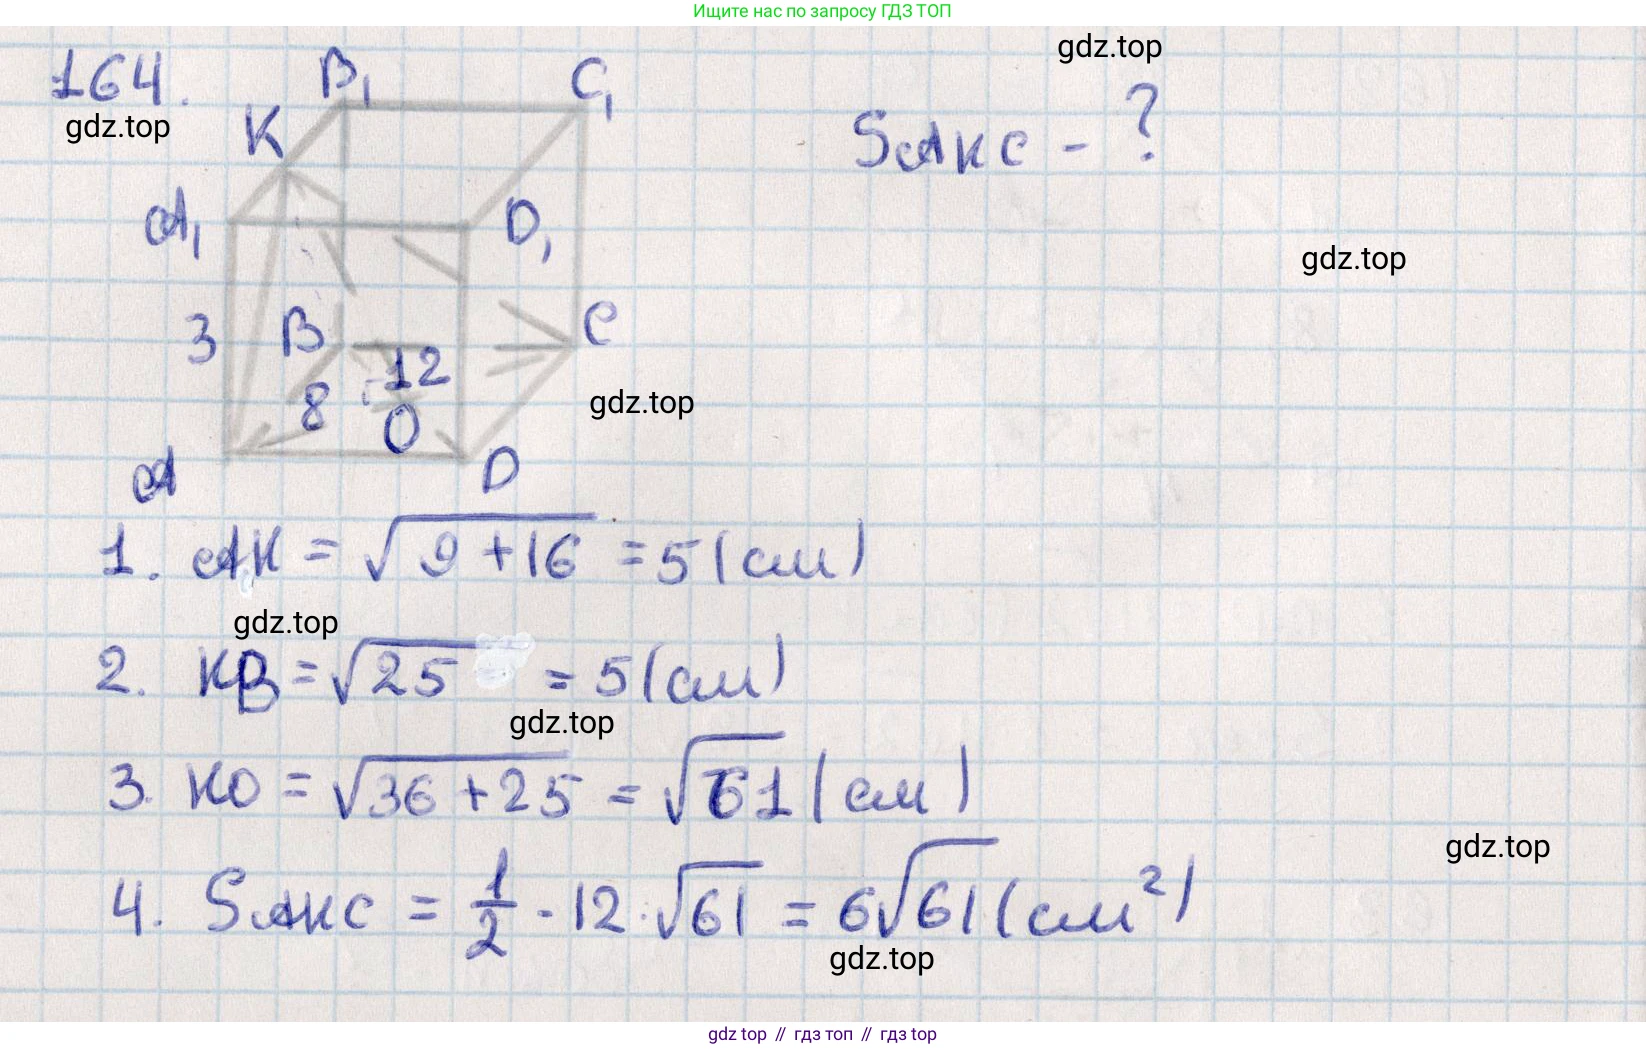 Ищите нас по запросу ГДЗ ТОП
gdz.top
164.
gdz.top
B₁
C₁
K
SAKC - ?
A₁
D₁
gdz.top
3
B
C
12
8
O
gdz.top
A
D
1. AK = √(9 + 16) = 5 (см)
gdz.top
2. KB = √25 = 5 (см)
gdz.top
3. KO = √(36 + 25) = √61 (см)
gdz.top
4. SAKC = 1/2 · 12 · √61 = 6√61 (см²)
gdz.top
gdz top // гдз топ // gdz top